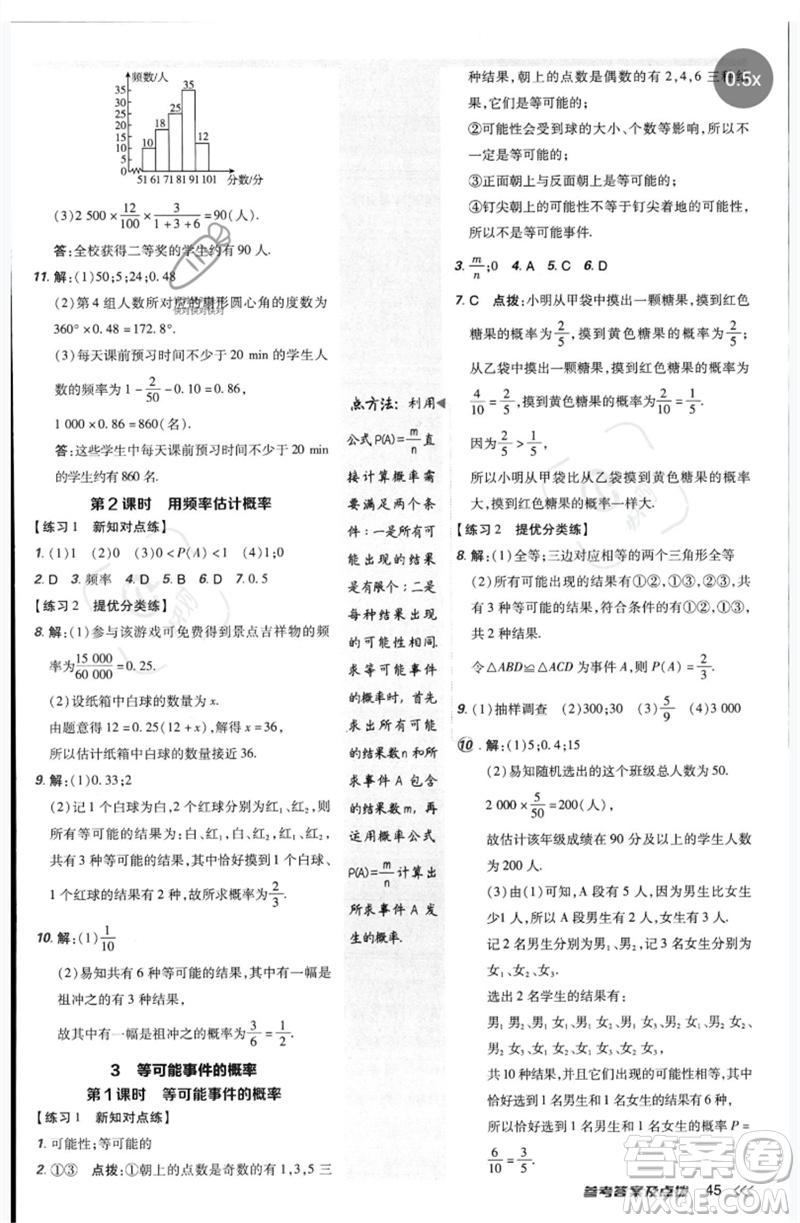 频数/人
35
30
25
20
15
10
5
0
10 18 25 35 12
51 61 71 81 91 101 分数/分
(3)2 500×12/100×3/(1+3+6)=90(人).
答:全校获得二等奖的学生约有 90 人.
11. 解:(1)50;5;24;0.48
(2)第 4 组人数所对应的扇形圆心角的度数为
360°×0.48=172.8°.
(3)每天课前预习时间不少于 20 min 的学生人
数的频率为 1-2/50-0.10=0.86,
1 000×0.86=860(名).
答:这些学生中每天课前预习时间不少于 20 min
的学生约有 860 名.
第 2 课时 用频率估计概率
【练习 1 新知对点练】
1. (1)1 (2)0 (3)0<P(A)<1
2. D 3. 频率 4. B 5. D 6. D 7. 0.5
【练习 2 提优分类练】
8. 解:(1)参与该游戏可免费得到景点吉祥物的频
率为15 000/60 000=0.25.
(2)设纸箱中白球的数量为 x.
由题意可得 12=0.25(12+x),解得 x=36.
所以估计纸箱中白球的数量接近 36.
9. 解:(1)0.33;2
(2)记 1 个白球为白、2 个红球分别为红₁、红₂,则
所有等可能的结果为:白、红₁,白、红₂,红₁、红₂,
共有 3 种等可能的结果,其中恰好摸到 1 个白球、
1 个红球的结果有 2 种,故所求概率为2/3.
10. 解:(1)1/10
(2)易知共有 6 种等可能的结果,其中有一幅是
祖冲之的有 3 种结果,
故其中有一幅是祖冲之的概率为3/6=1/2.
3 等可能事件的概率
第 1 课时 等可能事件的概率
【练习 1 新知对点练】
1. 可能性;等可能的
2. ①③ 点拨:①朝上的点数是奇数的有 1,3,5 三
点方法:利用
公式P(A)=m/n直
接计算概率需
要满足两个条
件:一是所有可
能出现的结果
是有限个;二是
每种结果出现
的可能性相同.
求等可能事件
的概率时,首先
求出所有可能
的结果数n和所
求事件 A 包含
的结果数m,再
运用概率公式
P(A)=m/n计算出
所求事件 A 发
生的概率.
0.5x
种结果,朝上的点数是偶数的有 2,4,6 三种结
果,它们是等可能的;
②可能性会受到球的大小、个数等影响,所以不
一定是等可能的;
③正面朝上与反面朝上是等可能的;
④钉尖朝上的可能性不同于钉尖着地的可能性,
所以不是等可能事件.
3. m/n;0 4. A 5. C 6. D
7. C 点拨:小明从甲袋中摸出一颗糖果,摸到红色
糖果的概率为1/5,摸到黄色糖果的概率为2/5;
从乙袋中摸出一颗糖果,摸到红色糖果的概率为
4/10=2/5,摸到黄色糖果的概率为2/10=1/5.
因为2/5>1/5,
所以小明从甲袋比从乙袋摸到黄色糖果的概率
大,摸到红色糖果的概率不一样大.
【练习 2 提优分类练】
8. 解:(1)全等;三边对应相等的两个三角形全等
(2)所有可能出现的结果有①②,①③,②③,共 3
种等可能的结果,符合条件的有①②,①③,
共 2 种.
令△ABD≌△ACD 为事件 A,则 P(A)=2/3.
9. (1)抽样调查 (2)300;30 (3)5/9 (4)3 000
10. 解:(1)5;0.4;15
(2)易知随机选出的这个班级总人数为 50.
2 000×5/50=200(人),
故估计该年级成绩在 90 分及以上的学生人数
为 200 人.
(3)由(1)可知,A 段有 5 人,因为男生比女生
少1 人,所以 A 段男生有 2 人,女生有 3 人.
记 2 名男生分别为男₁、男₂,记 3 名女生分别
为女₁、女₂、女₃.
选出 2 名学生的结果有:
男₁男₂,男₁女₁,男₁女₂,男₁女₃,男₂女₁,
男₂女₂,男₂女₃,女₁女₂,女₁女₃,女₂女₃,
共 10 种结果,并且它们出现的可能性相等.
其中包含 1 名男生 1 名女生的结果有 6 种,
所以选到 1 名男生和 1 名女生的概率 P=
6/10=3/5.
参考答案及点拨 45
答案圈
MXQE.COM